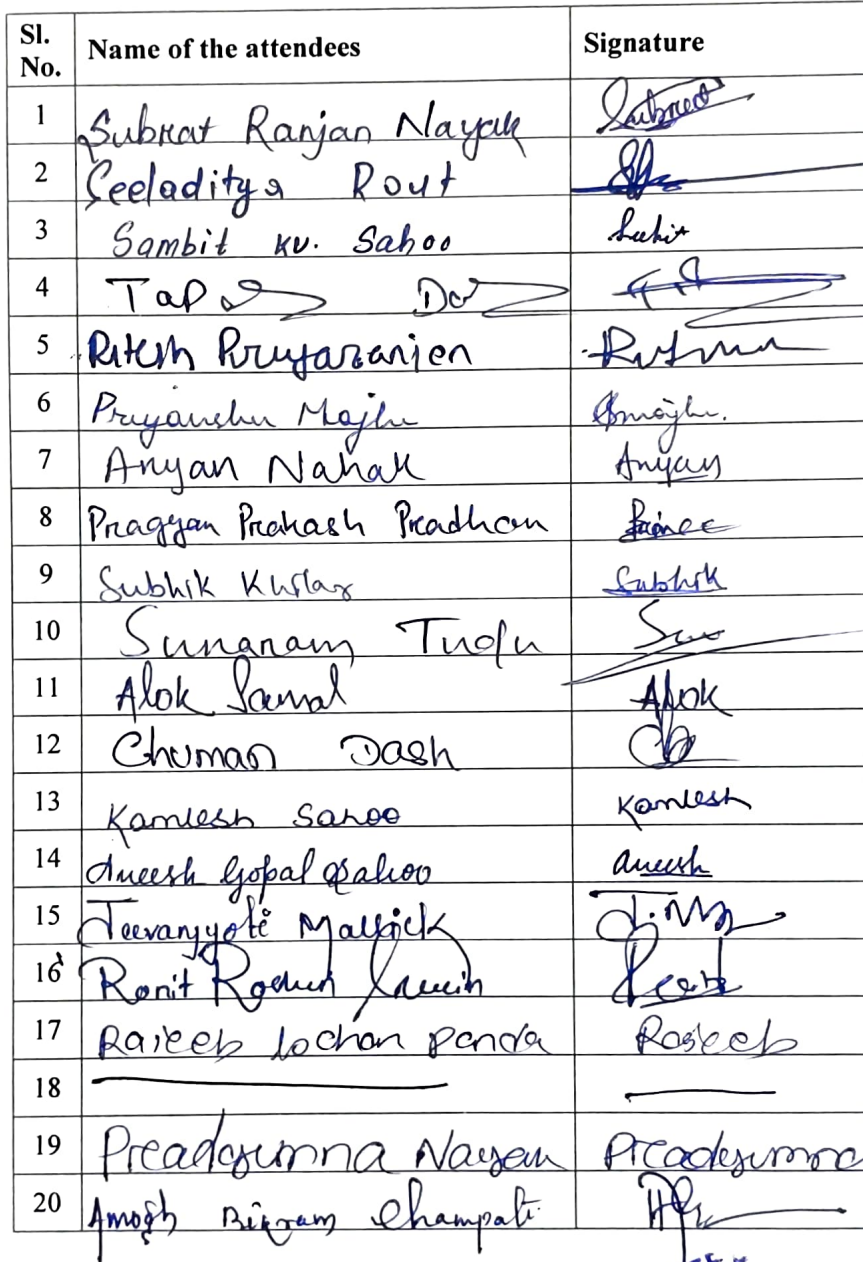 Sl. No. Name of the attendees Signature
1 Subrat Ranjan Nayak Subrat
2 Seeladitya Rout
3 Sambit Ku. Sahoo
4
5 Ritesh Priyaranjen
6 Priyanshu Majhi
7 Aryan Nahak Aryan
8 Pragyan Prakash Pradhan Prince
9 Subhik Subhik
10 Sunaram Tudu
11 Alok Samal Alok
12 Chuman Dash
13 Kamlesh Sahoo Kamlesh
14 Aneesh Gopal Sahoo Aneesh
15 Jeevanjyoti Mallick
16 Ronit
17 Rajeeb lochan panda Rajeeb
18
19 Preadyumna Nayak Preadyumna
20 Amogh Bikram Champati